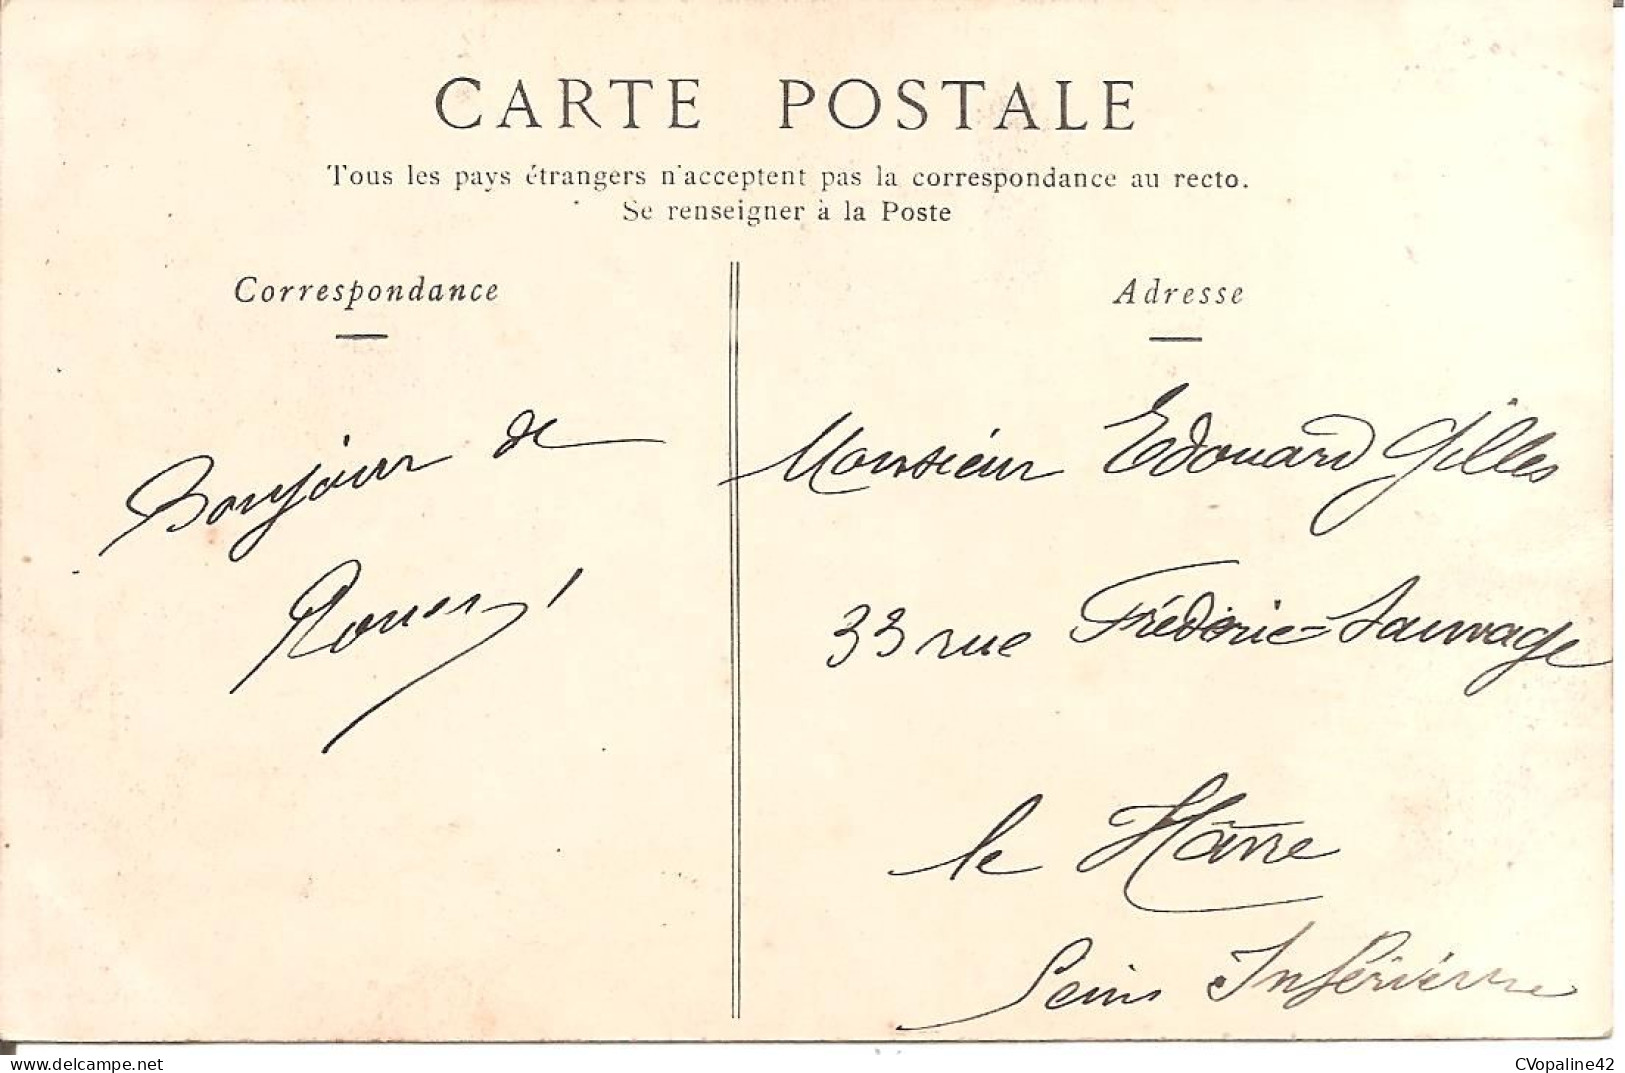 CARTE POSTALE
Tous les pays étrangers n'acceptent pas la correspondance au recto.
Se renseigner à la Poste
Correspondance
Bonjour de
Rouen
Adresse
Monsieur Edouard Gilles
33 rue Frédéric-Sauvage
le Hâvre
Seine Inférieure
CVopaline42